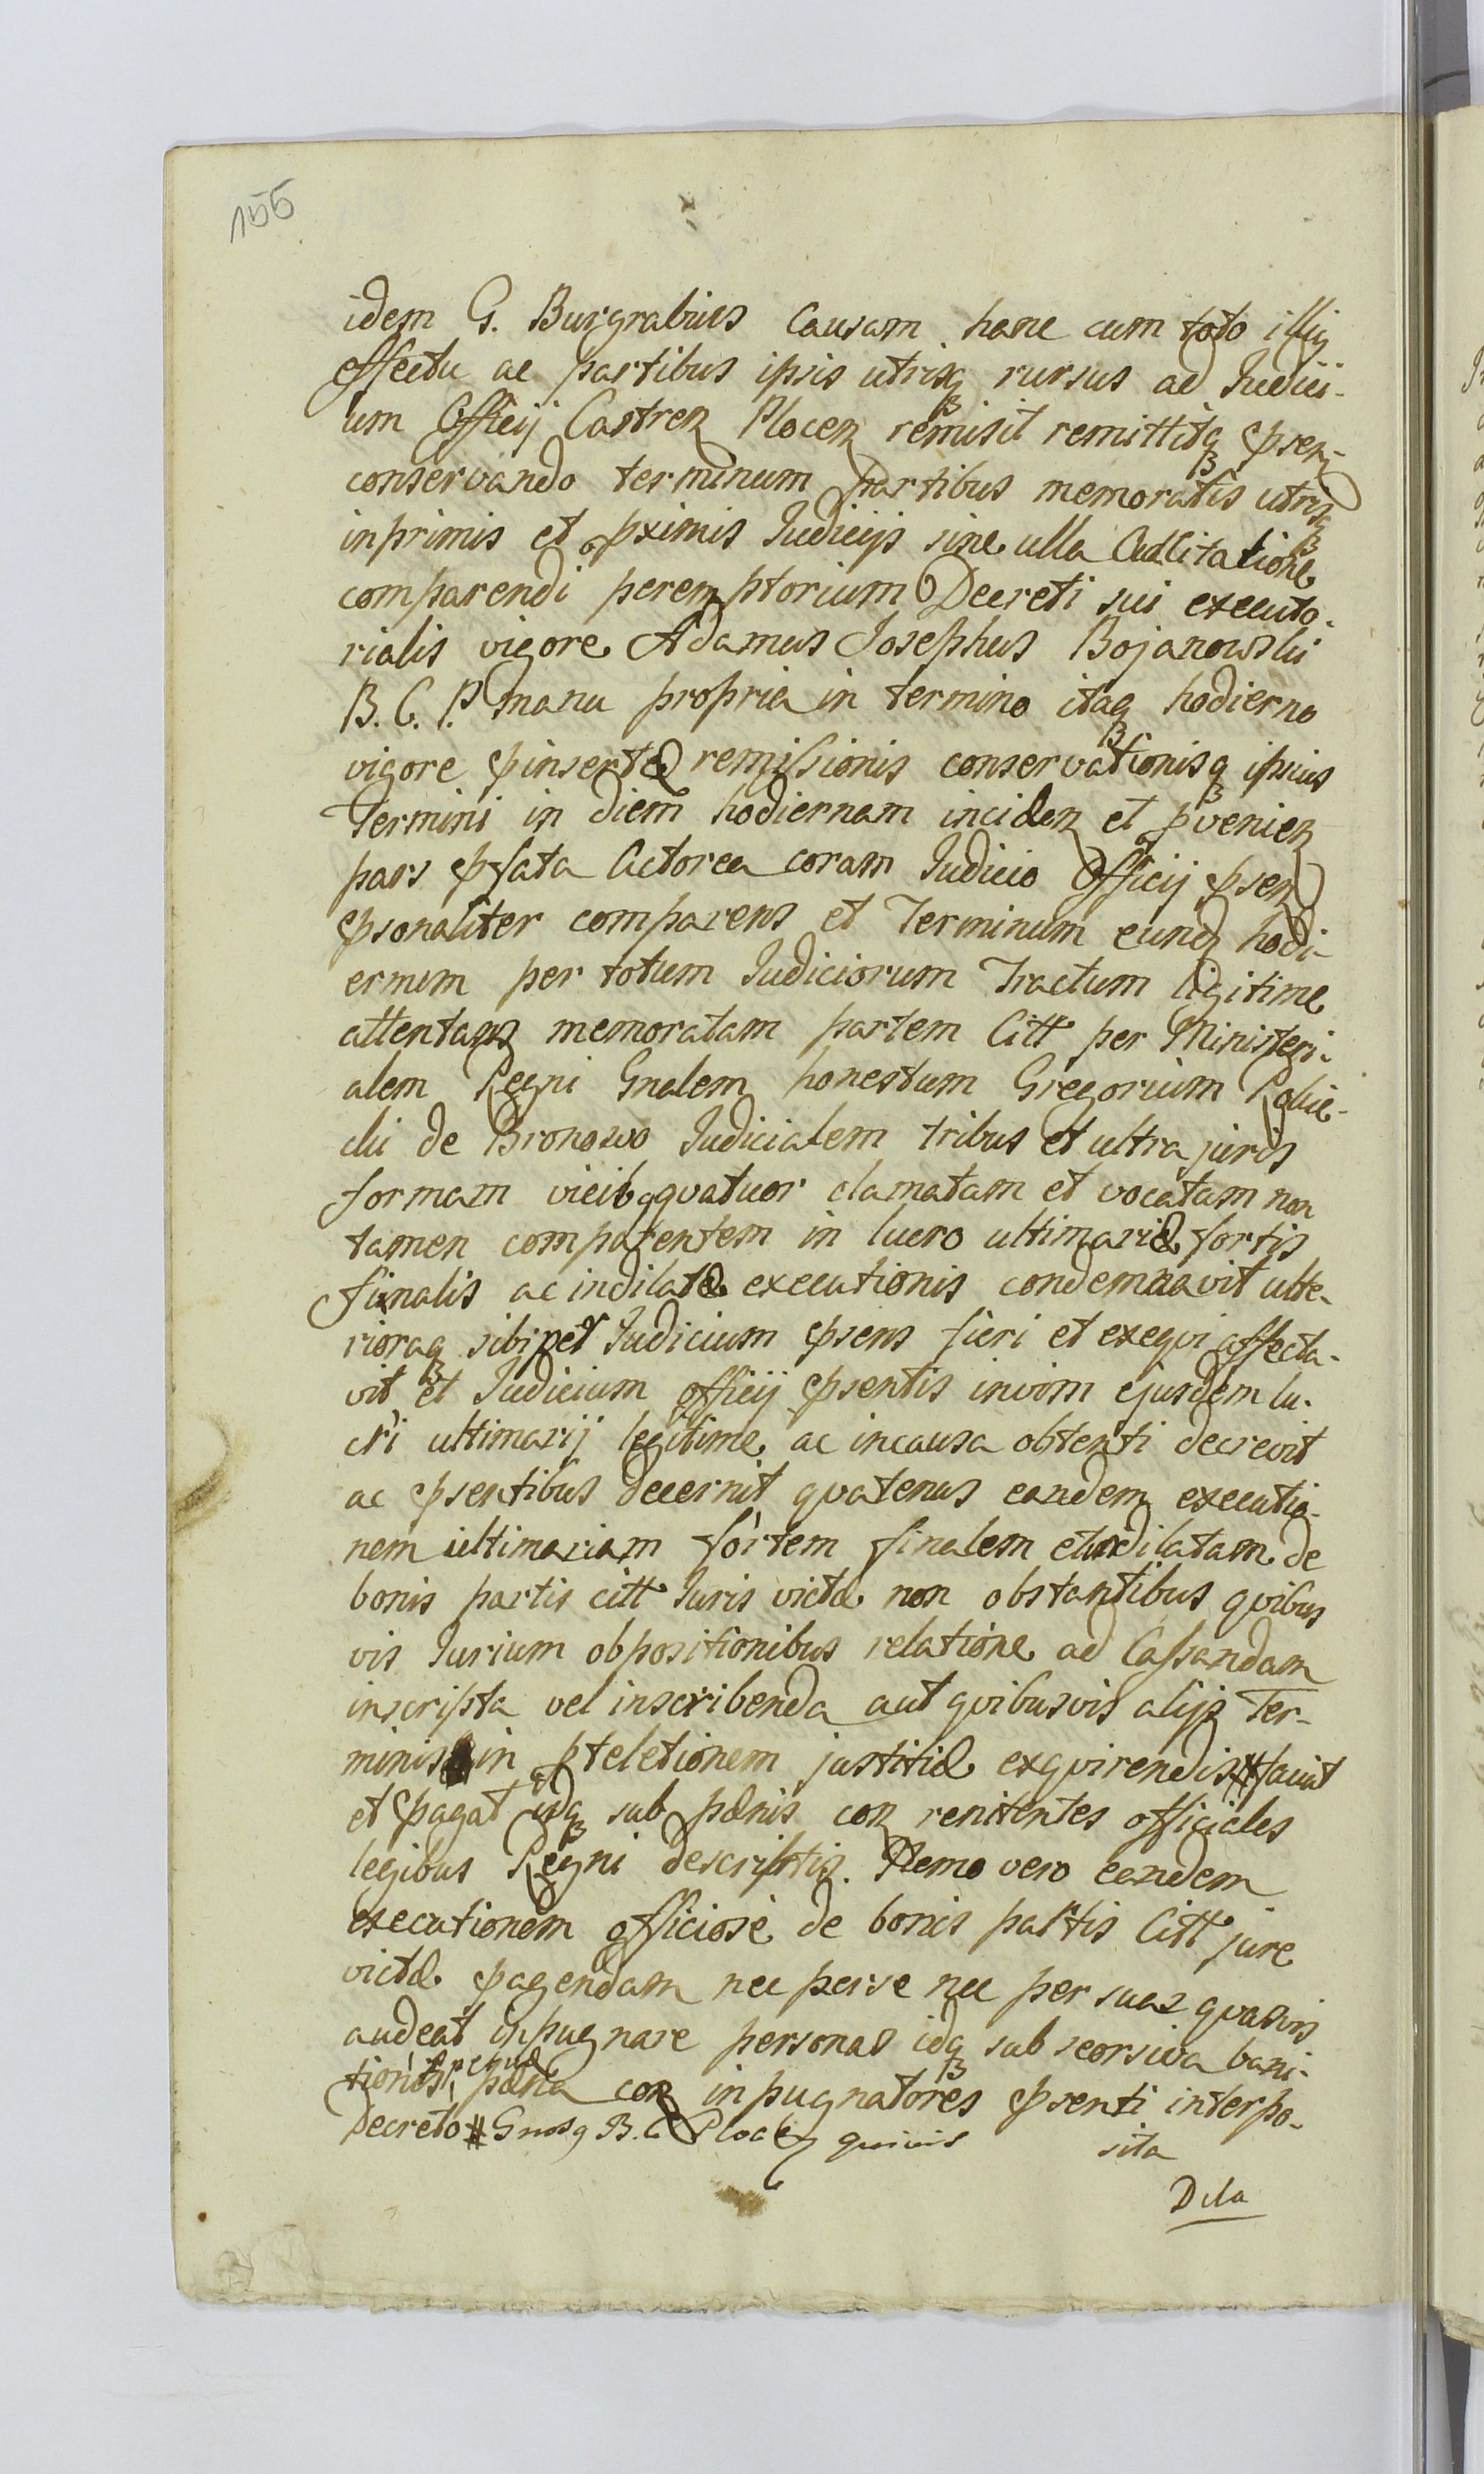 155
idem G. Burgrabius Causam hanc cum toto illiq
effectu ac partibus ipsis utrisqꝫ rursus ad Judici-
um Officij Castren Plocen remisit remittitqꝫ psen
conservando terminum partibus memoratis utrisqꝫ
inprimis et pximis Judicijs sine ulla Adcitatione
comparendi peremptorium Decreti sui executo-
rialis vigore Adamus Josephus Bojanowski
B. C. P. manu propria in termino itaqꝫ hodierno
vigore pinsertæ remissionis conservationisqꝫ ipsius
Termini in diem hodiernam inciden et pvenien
pars pfata Actorea coram Judicio Officij psen
psonaliter comparens et Terminum eund hodi-
ernum per totum Judiciorum Tractum ligitime
attentans memoratam partem Citt per Ministeri-
alem Regni Gnalem honestum Gregorium
de Bronowo Judicialem tribus et ultra juris
formam vicibq quatuor clamatam et vocatam non
tamen comparentem in lucro ultimariæ fortis
finalis ac indilatæ executionis condemnavit ulte-
rioraqꝫ sibi per Judicium psens fieri et exequi affecta-
vit et Judicium officij psentis invim ejusdem lu-
cri ultimarij legitime ac incausa obtenti decrevit
ac psentibus decernit quatenus eandem executio-
nem ultimariam fortem finalem et indilatam de
bonis partis citt Juris victæ non obstantibus quibus
vis Jurium obpositionibus relatione ad Cassandam
inscripta vel inscribenda aut quibusvis alijs Ter-
minis in pteletionem justitiæ exquirendis # faciat
et pagat idqꝫ sub pænis con renitentes officiales
legibus Regni descriptis. Nemo vero eandem
executionem officiose de bonis partis Citt jure
victæ pagendam nec per se nec per suas quasvis
audeat inpugnare personas idqꝫ sub seorsiva bani-
tionis pæna con inpugnatores psenti interpo-
Decreto # Gnosq B. C. Plocen quivis
sita
Dila